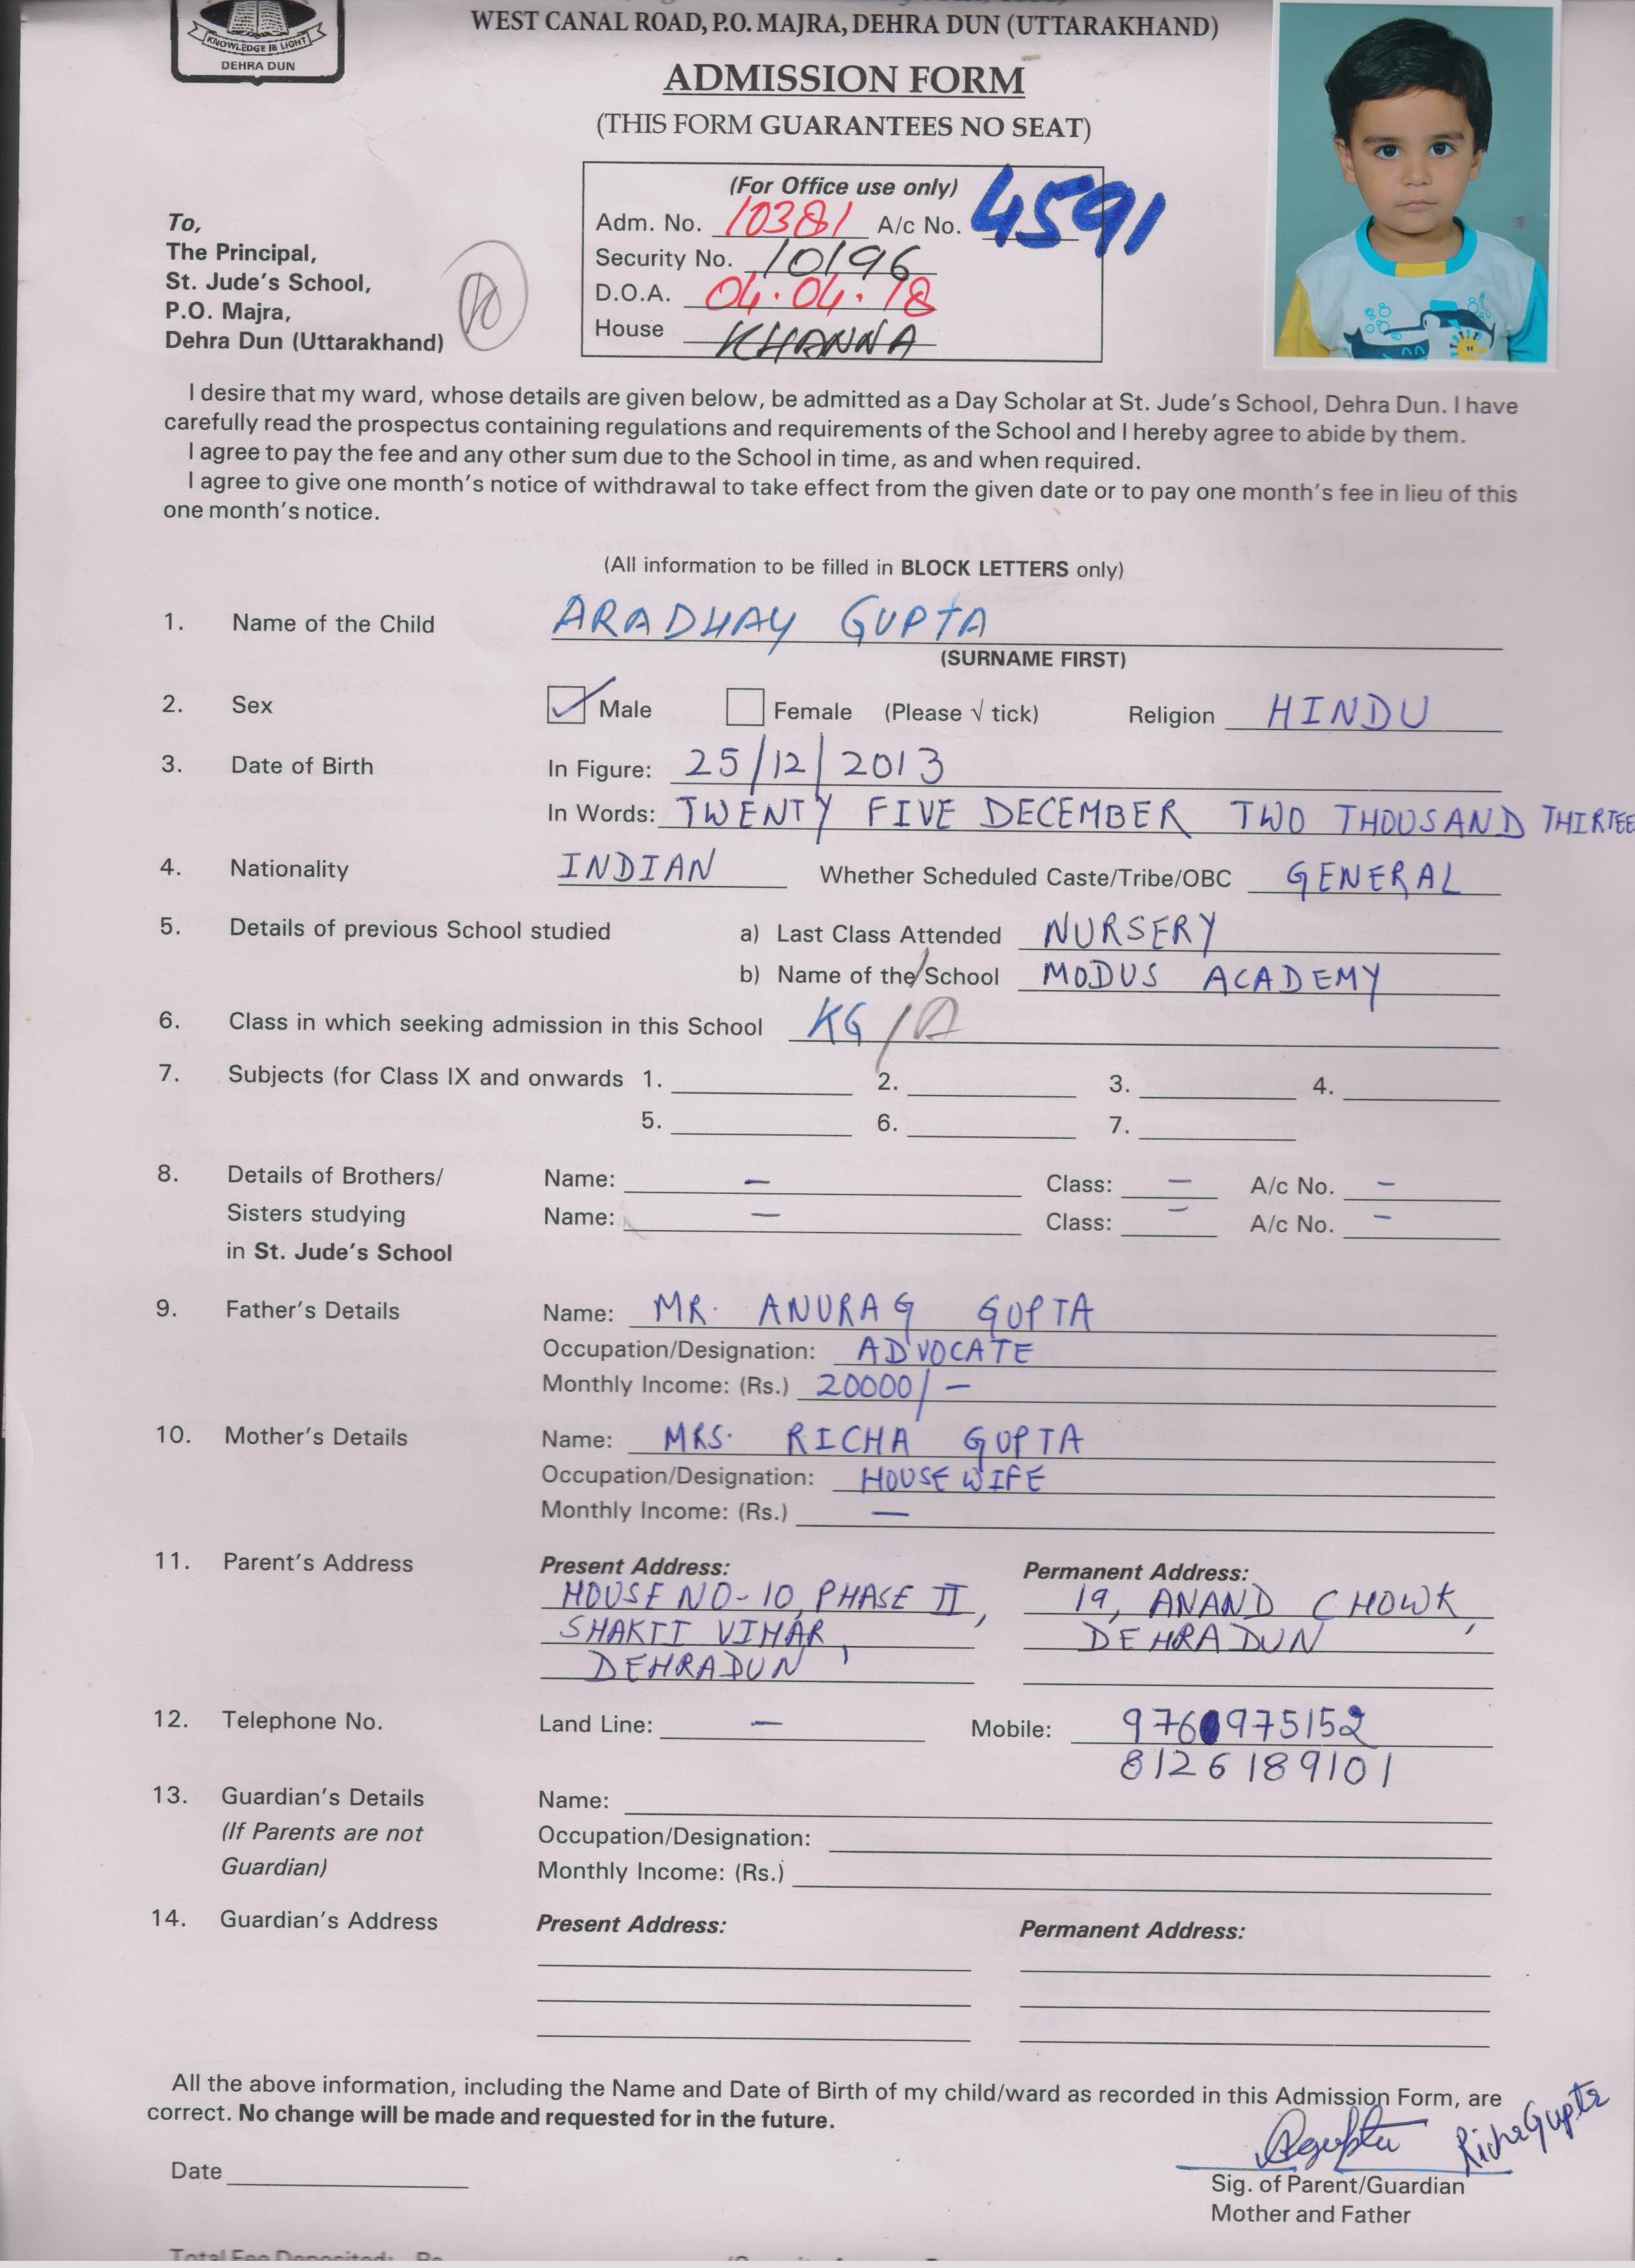 KNOWLEDGE IS LIGHT
DEHRA DUN
WEST CANAL ROAD, P.O. MAJRA, DEHRA DUN (UTTARAKHAND)
ADMISSION FORM
(THIS FORM GUARANTEES NO SEAT)
(For Office use only)
Adm. No. 10381 A/c No. 4591
Security No. 10196
D.O.A. 04.04.18
House KHANNA
To,
The Principal,
St. Jude's School,
P.O. Majra,
Dehra Dun (Uttarakhand)
I desire that my ward, whose details are given below, be admitted as a Day Scholar at St. Jude's School, Dehra Dun. I have
carefully read the prospectus containing regulations and requirements of the School and I hereby agree to abide by them.
I agree to pay the fee and any other sum due to the School in time, as and when required.
I agree to give one month's notice of withdrawal to take effect from the given date or to pay one month's fee in lieu of this
one month's notice.
(All information to be filled in BLOCK LETTERS only)
1. Name of the Child ARADHAY GUPTA
(SURNAME FIRST)
2. Sex Male Female (Please √ tick) Religion HINDU
3. Date of Birth In Figure: 25/12/2013
In Words: TWENTY FIVE DECEMBER TWO THOUSAND THIRTEE
4. Nationality INDIAN Whether Scheduled Caste/Tribe/OBC GENERAL
5. Details of previous School studied a) Last Class Attended NURSERY
b) Name of the School MODUS ACADEMY
6. Class in which seeking admission in this School KG/A
7. Subjects (for Class IX and onwards 1. 2. 3. 4.
5. 6. 7.
8. Details of Brothers/ Name: — Class: — A/c No. —
Sisters studying Name: — Class: — A/c No. —
in St. Jude's School
9. Father's Details Name: MR. ANURAG GUPTA
Occupation/Designation: ADVOCATE
Monthly Income: (Rs.) 20000/-
10. Mother's Details Name: MRS. RICHA GUPTA
Occupation/Designation: HOUSE WIFE
Monthly Income: (Rs.) —
11. Parent's Address Present Address: Permanent Address:
HOUSE NO-10, PHASE II, 19, ANAND CHOWK,
SHAKTI VIHAR, DEHRADUN
DEHRADUN
12. Telephone No. Land Line: — Mobile: 9760975152
8126189101
13. Guardian's Details Name:
(If Parents are not Occupation/Designation:
Guardian) Monthly Income: (Rs.)
14. Guardian's Address Present Address: Permanent Address:
All the above information, including the Name and Date of Birth of my child/ward as recorded in this Admission Form, are
correct. No change will be made and requested for in the future.
Agupta Richa Gupta
Date
Sig. of Parent/Guardian
Mother and Father
Total Fee Deposited: Rs.